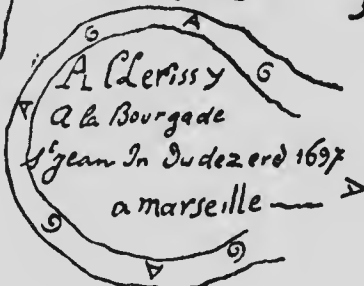 A Clerissy
A la Bourgade
St jean In Dudezerd 1697
a marseille